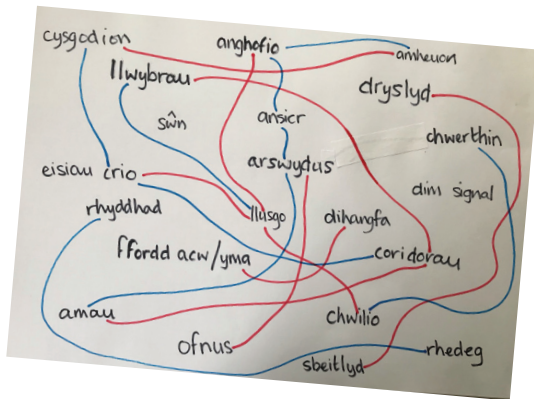 cysgodion
anghofio
amheuon
llwybrau
dryslyd
sŵn
ansicr
chwerthin
arswydus
eisiau crio
dim signal
rhyddhad
llusgo
dihangfa
ffordd acw/yma
coridorau
amau
chwilio
ofnus
sbeitlyd
rhedeg